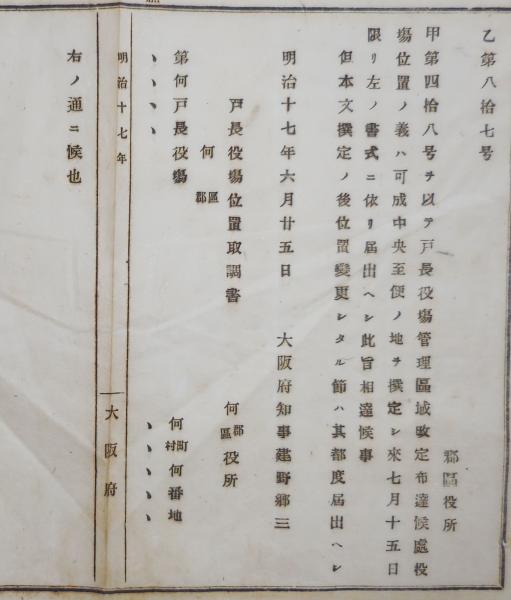 乙第八拾七号
郡區役所
甲第四拾八号ヲ以テ戸長役塲管理區域改定布達候處役
塲位置ノ義ハ可成中央至便ノ地ヲ撰定シ來七月十五日
限リ左ノ書式ニ依リ届出ヘシ此旨相達候事
但本文撰定ノ後位置變更シタル節ハ其都度届出ヘシ
明治十七年六月廿五日　大阪府知事建野郷三
戸長役塲位置取調書
何 區郡
何 郡區 役所
第何戸長役塲　何 町村 何番地
、、、、　、、、、、
明治十七年　大阪府
右ノ通ニ候也